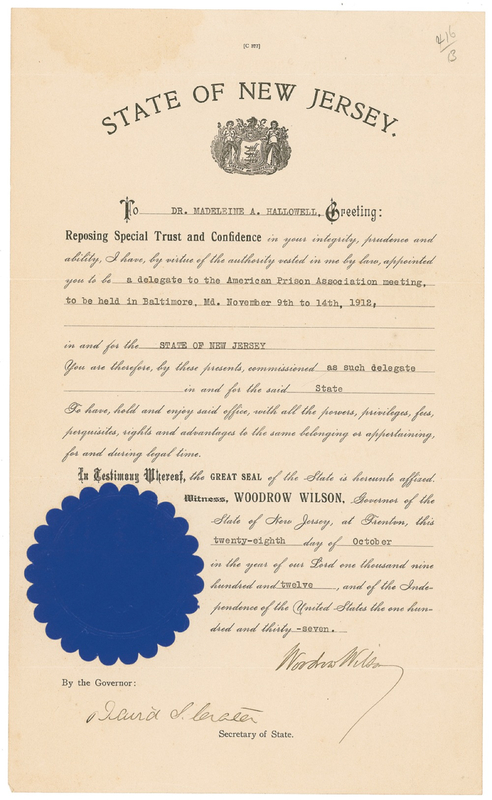 [C 892]
416
B
STATE OF NEW JERSEY.
To DR. MADELEINE A. HALLOWELL, Greeting:
Reposing Special Trust and Confidence in your integrity, prudence and
ability, I have, by virtue of the authority vested in me by law, appointed
you to be a delegate to the American Prison Association meeting,
to be held in Baltimore, Md. November 9th to 14th, 1912,
in and for the STATE OF NEW JERSEY
You are therefore, by these presents, commissioned as such delegate
in and for the said State
To have, hold and enjoy said office, with all the powers, privileges, fees,
perquisites, rights and advantages to the same belonging or appertaining,
for and during legal time.
In Testimony Whereof, the GREAT SEAL of the State is hereunto affixed.
Witness, WOODROW WILSON, Governor of the
State of New Jersey, at Trenton, this
twenty-eighth day of October
in the year of our Lord one thousand nine
hundred and twelve, and of the Inde-
pendence of the United States the one hun-
dred and thirty-seven.
Woodrow Wilson
By the Governor:
David S. Crater
Secretary of State.